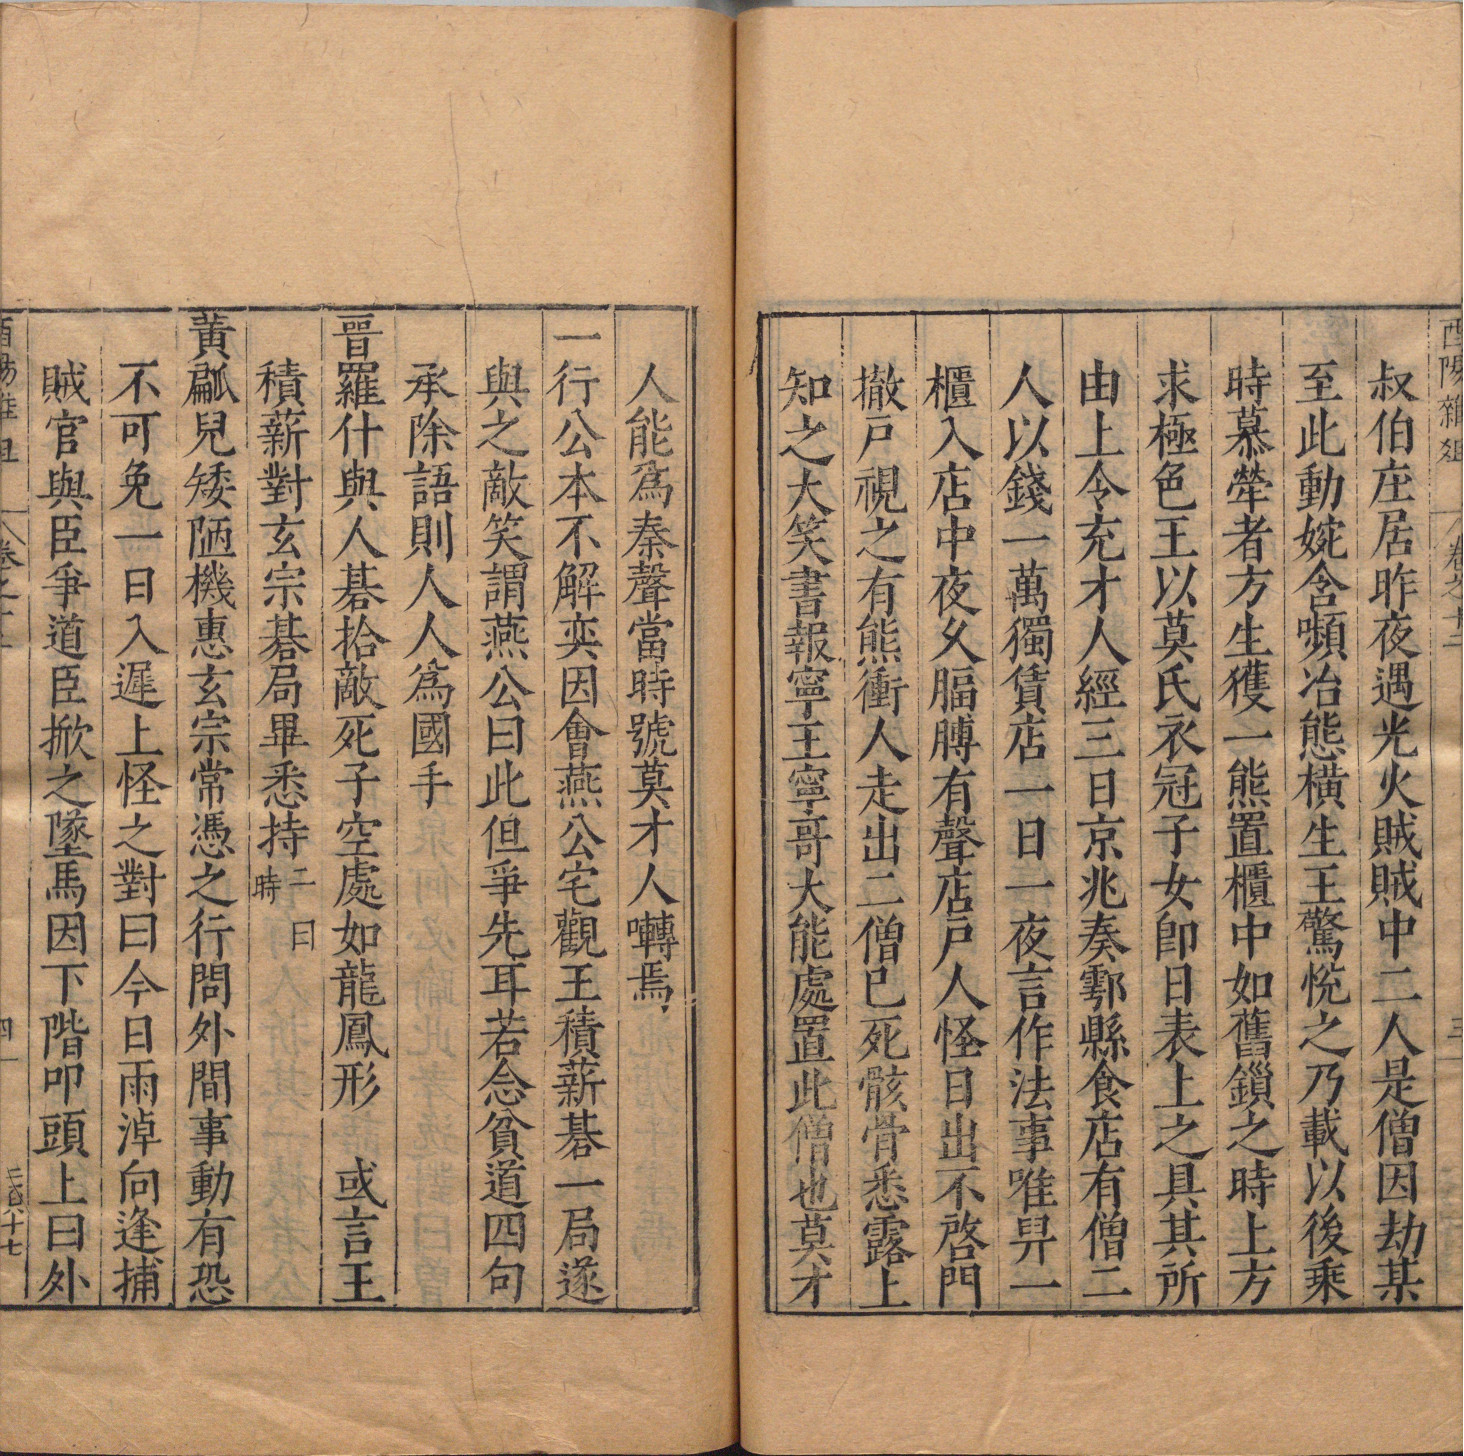 酉陽雜俎 卷之十二 三
叔伯庄居昨夜遇光火賊賊中二人是僧因劫某
至此動婉含嚬冶態橫生王驚悅之乃載以後乘
時慕犖者方生獲一熊置櫃中如舊鎖之時上方
求極色王以莫氏衣冠子女卽日表上之具其所
由上令充才人經三日京兆奏鄠縣食店有僧二
人以錢一萬獨賃店一日一夜言作法事唯舁一
櫃入店中夜久腷膊有聲店戶人怪日出不啓門
撤戶視之有熊衝人走出二僧已死骸骨悉露上
知之大笑書報寧王寧哥大能處置此僧也莫才
人能爲秦聲當時號莫才人囀焉
一行公本不解奕因會燕公宅觀王積薪碁一局遂
與之敵笑謂燕公曰此但爭先耳若念貧道四句
承除語則人人爲國手
晉羅什與人碁拾敵死子空處如龍鳳形 或言王
積薪對玄宗碁局畢悉持 二曰時
黃𤬏兒矮陋機惠玄宗常憑之行問外間事動有恐
不可免一日入遲上怪之對曰今日雨淖向逢捕
賊官與臣爭道臣掀之墜馬因下階叩頭上曰外
酉陽雜俎 卷之十二 四